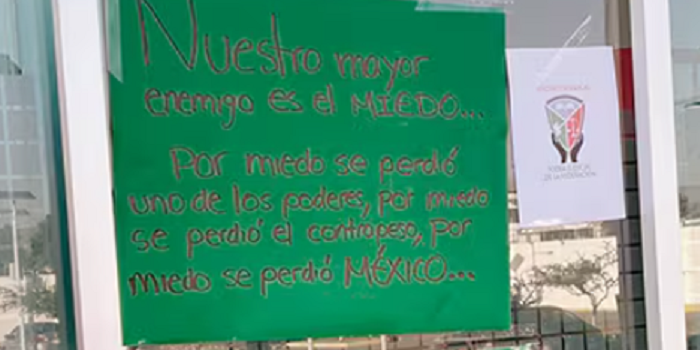 Nuestro mayor
enemigo es el MIEDO...
Por miedo se perdió
uno de los poderes, por miedo
se perdió el contrapeso, por
miedo se perdió MÉXICO...
PODER JUDICIAL
DE LA FEDERACIÓN